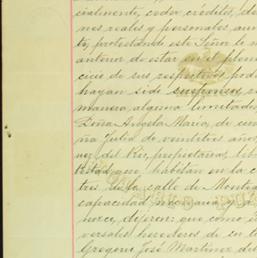 cialmente, ceder créditos, de
nes reales y personales, aun
te, protestando este Señor le
anterior de estar en el pleno
cicio de sus respectivos pod
hayan sido suspensos, n
manera alguna limitados
Doña Angela Maria, de cin
ña Julia de veintitres año
del Rio, propietarias,
habitan en la c
tres de la calle de
capacidad necesaria y a
dicen: que como
versales herederos de
Gregorio José Martinez del